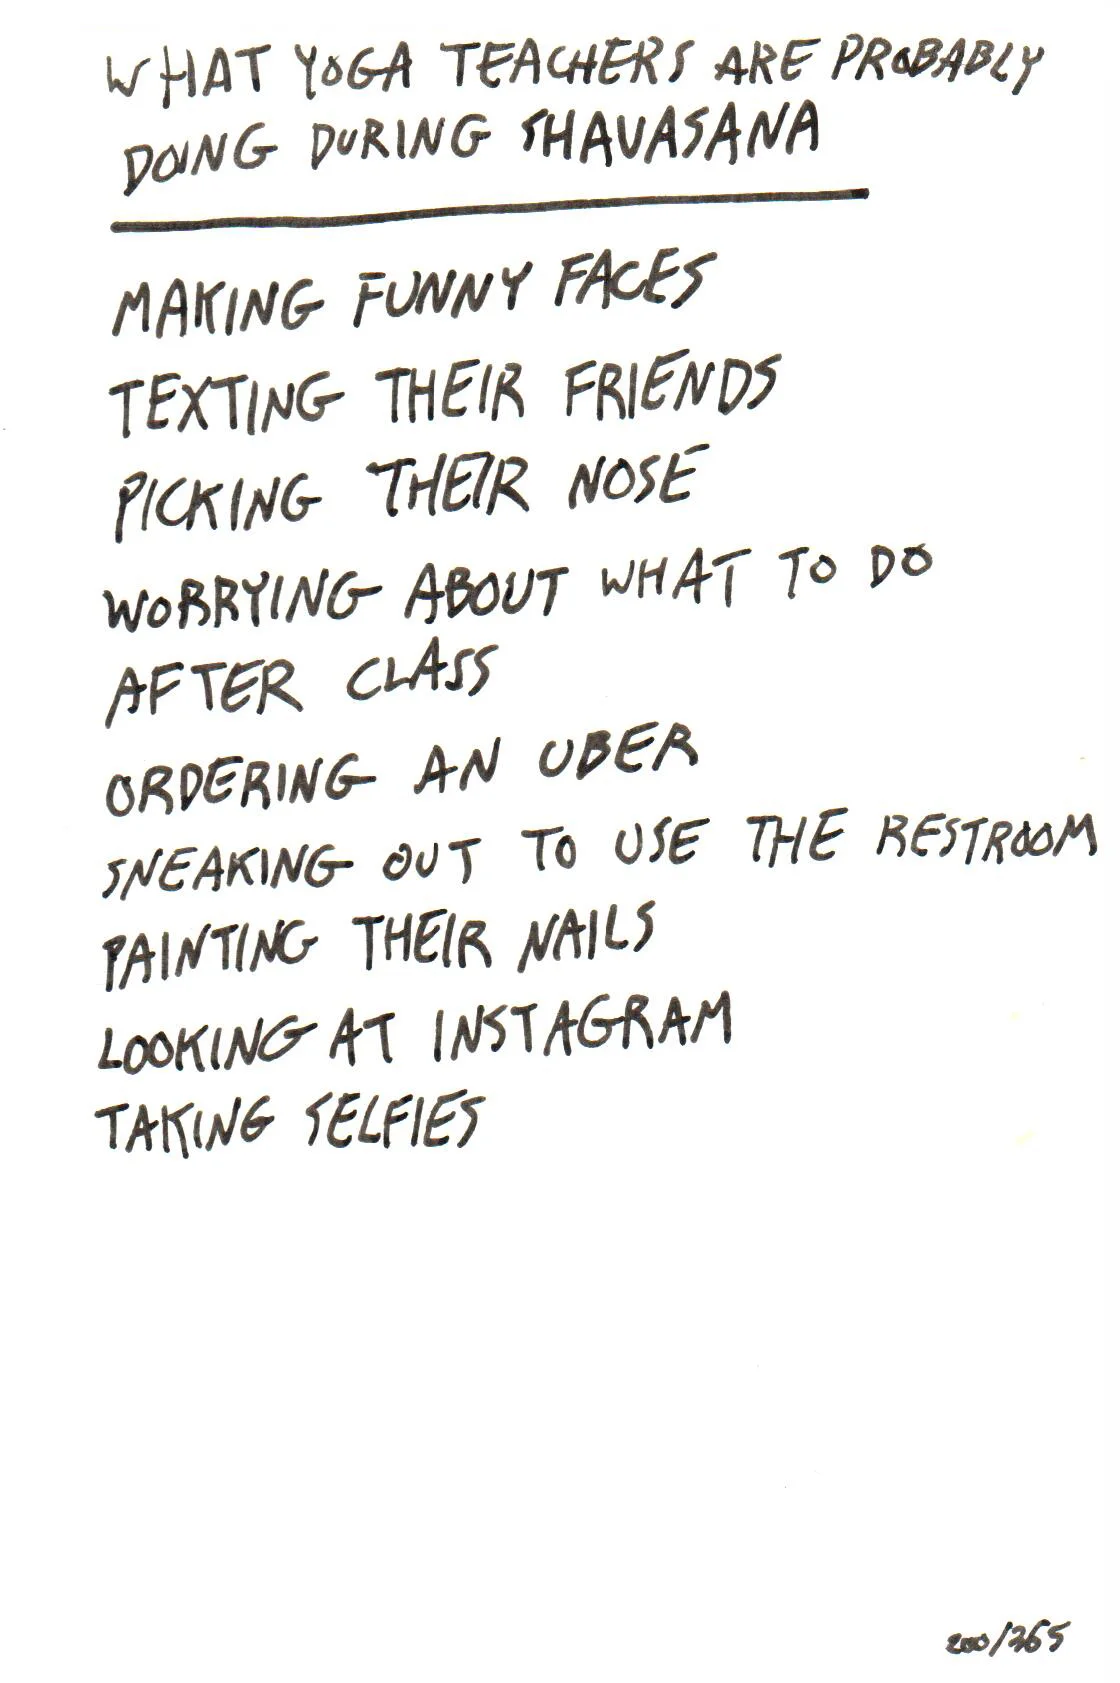 WHAT YOGA TEACHERS ARE PROBABLY
DOING DURING SHAVASANA
MAKING FUNNY FACES
TEXTING THEIR FRIENDS
PICKING THEIR NOSE
WORRYING ABOUT WHAT TO DO
AFTER CLASS
ORDERING AN UBER
SNEAKING OUT TO USE THE RESTROOM
PAINTING THEIR NAILS
LOOKING AT INSTAGRAM
TAKING SELFIES
200/365